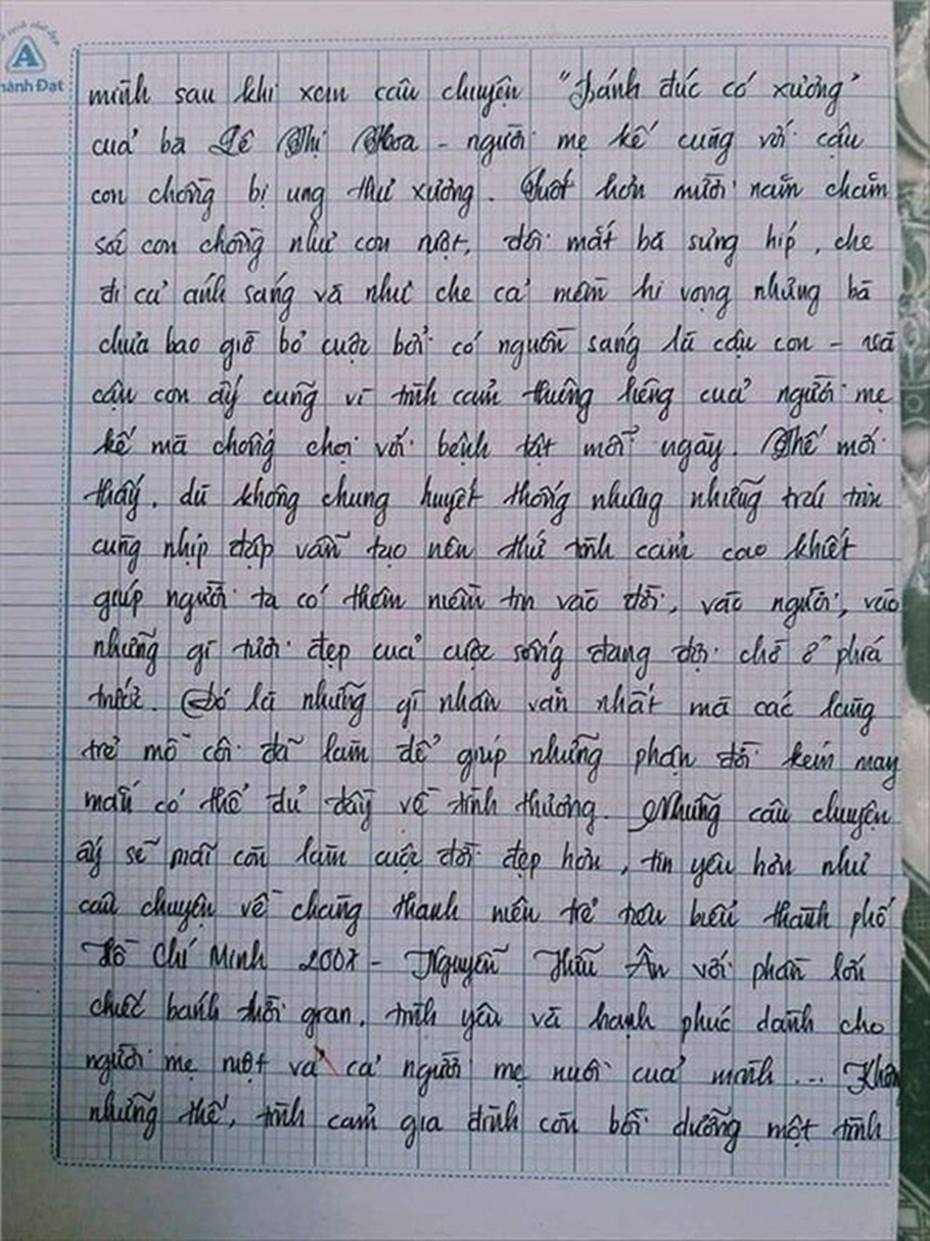 A
hành Đạt
mình sau khi xem câu chuyện "Bánh đúc có xương"
của bà Lê Thị Hoa - người mẹ kế cùng với cậu
con chồng bị ung thư xương. Suốt hơn mười năm chăm
sóc con chồng như con ruột, đôi mắt bà sưng húp, che
đi cả ánh sáng và như che cả niềm hi vọng nhưng bà
chưa bao giờ bỏ cuộc bởi có nguồn sáng là cậu con - và
cậu con ấy cũng vì tình cảm thiêng liêng của người mẹ
kế mà chống chọi với bệnh tật mỗi ngày. Thế mới
thấy, dù không chung huyết thống nhưng những trái tim
cùng nhịp đập vẫn tạo nên thứ tình cảm cao khiết
giúp người ta có thêm niềm tin vào đời, vào người, vào
những gì tươi đẹp của cuộc sống đang đợi chờ ở phía
trước. Đó là những gì nhân văn nhất mà các làng
trẻ mồ côi đã làm để giúp những phận đời kém may
mắn có thể đủ đầy về tình thương. Những câu chuyện
ấy sẽ mãi còn làm cuộc đời đẹp hơn, tin yêu hơn như
câu chuyện về chàng thanh niên trẻ tiêu biểu thành phố
Hồ Chí Minh - Nguyễn Hữu Ân với phần lớn
chiếc bánh thời gian, tình yêu và hạnh phúc dành cho
người mẹ ruột và cả người mẹ nuôi của mình... Khôn
những thế, tình cảm gia đình còn bồi dưỡng một tình